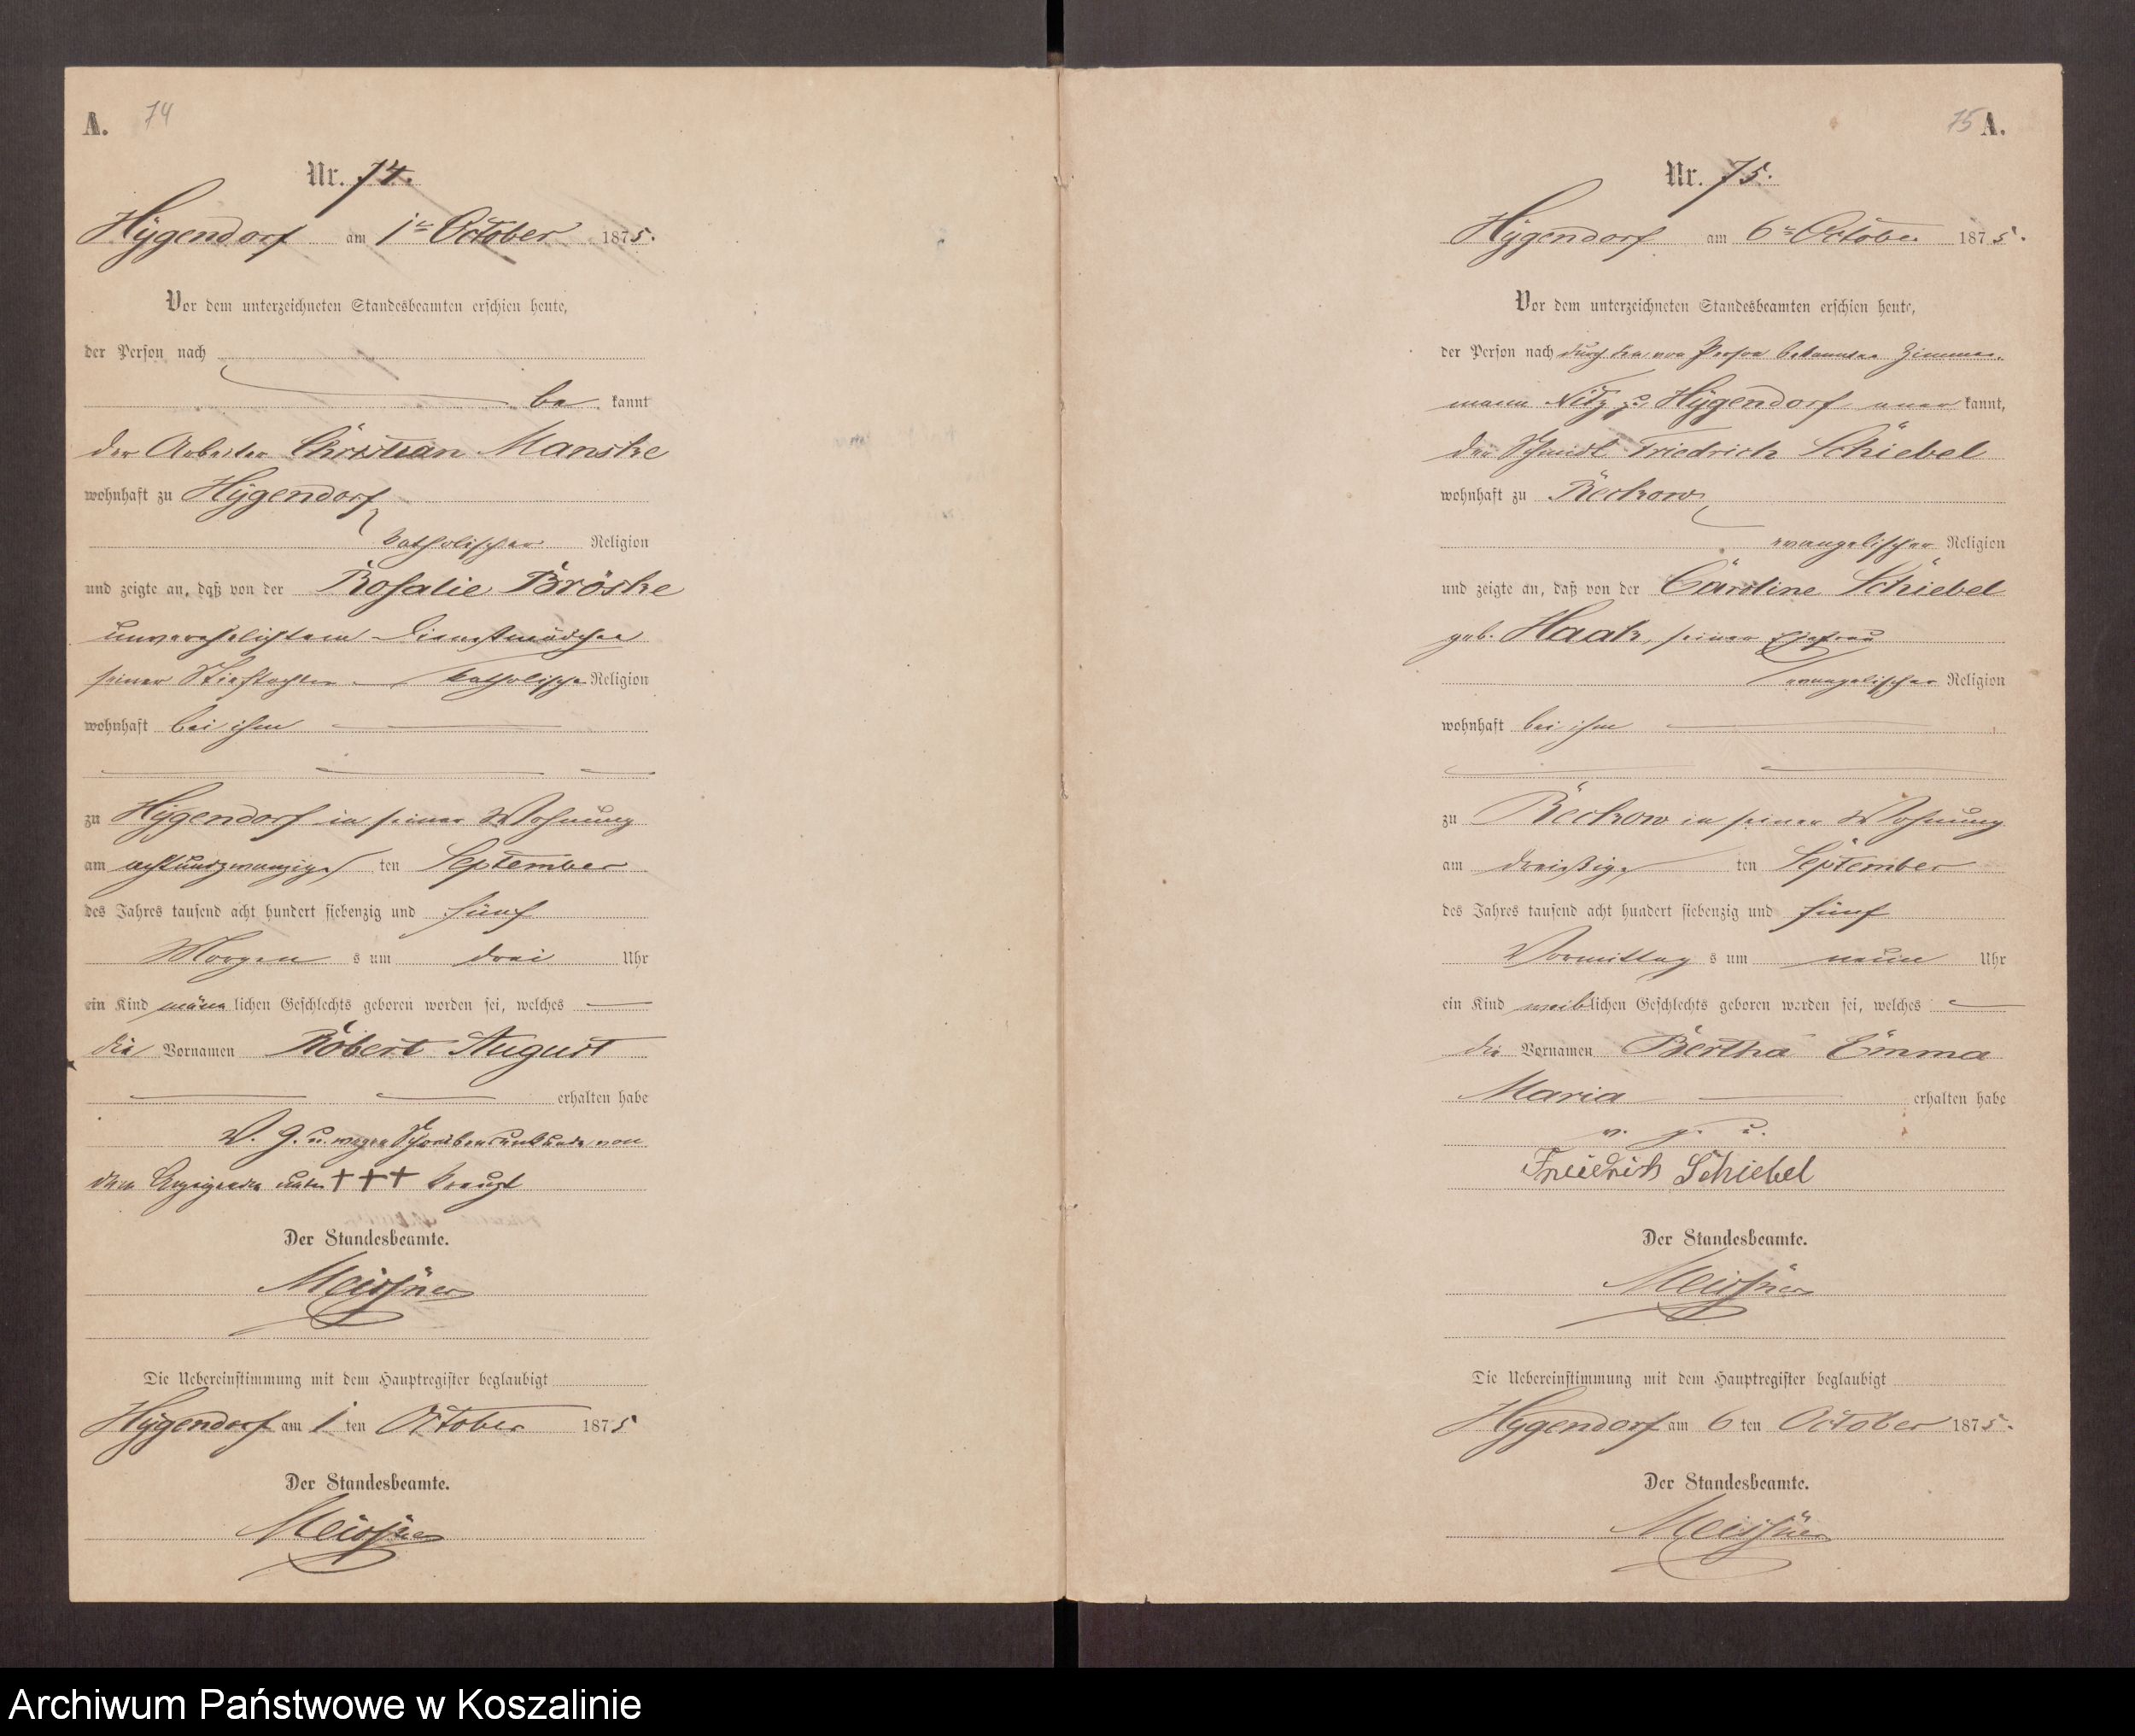 A. 74
Nr. 74.
Hÿgendorf am 1ten October 1875.
Vor dem unterzeichneten Standesbeamten erschien heute,
der Person nach
be kannt
der Arbeiter Christian Manske
wohnhaft zu Hÿgendorf
katholischer Religion
und zeigte an, daß von der Rosalie Bröske
unverehelichten Dienstmädchen
seiner Stieftochter katholischer Religion
wohnhaft bei ihm
zu Hÿgendorf in seiner Wohnung
am achtundzwanzig ten September
des Jahres tausend acht hundert siebenzig und fünf
Morgen s um drei Uhr
ein Kind männ lichen Geschlechts geboren worden sei, welches
die Vornamen Robert August
erhalten habe
V. g. u. wegen Schreibensunkunde von
dem Anzeigenden unter +++ kreuzt
Der Standesbeamte.
Meissner
Die Uebereinstimmung mit dem Hauptregister beglaubigt
Hÿgendorf am 1 ten October 1875
Der Standesbeamte.
Meissner
75 A.
Nr. 75.
Hÿgendorf am 6ten October 1875.
Vor dem unterzeichneten Standesbeamten erschien heute,
der Person nach durch den von Person bekannten Zimmer-
mann Nitz zu Hÿgendorf aner kannt,
der Schmidt Friedrich Schiebel
wohnhaft zu Beckow
evangelischer Religion
und zeigte an, daß von der Caroline Schiebel
geb. Haak, seiner Ehefrau
evangelischer Religion
wohnhaft bei ihm
zu Beckow in seiner Wohnung
am dreißig ten September
des Jahres tausend acht hundert siebenzig und fünf
Vormittag s um neun Uhr
ein Kind weib lichen Geschlechts geboren worden sei, welches
die Vornamen Bertha Emma
Maria erhalten habe
v. g. u.
Friedrich Schiebel
Der Standesbeamte.
Meissner
Die Uebereinstimmung mit dem Hauptregister beglaubigt
Hÿgendorf am 6 ten October 1875.
Der Standesbeamte.
Meissner
Archiwum Państwowe w Koszalinie